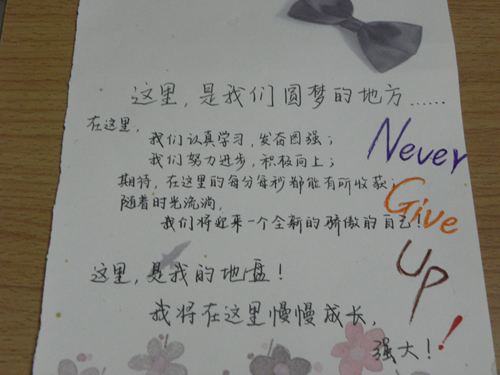 这里,是我们圆梦的地方……
在这里,
我们认真学习,发奋图强;
我们努力进步,积极向上;
期待,在这里的每分每秒都能有所收获;
随着时光流淌,
我们将迎来一个全新的骄傲的自己!
这里,是我的地盘!
我将在这里慢慢成长,
强大!
Never
Give
Up!